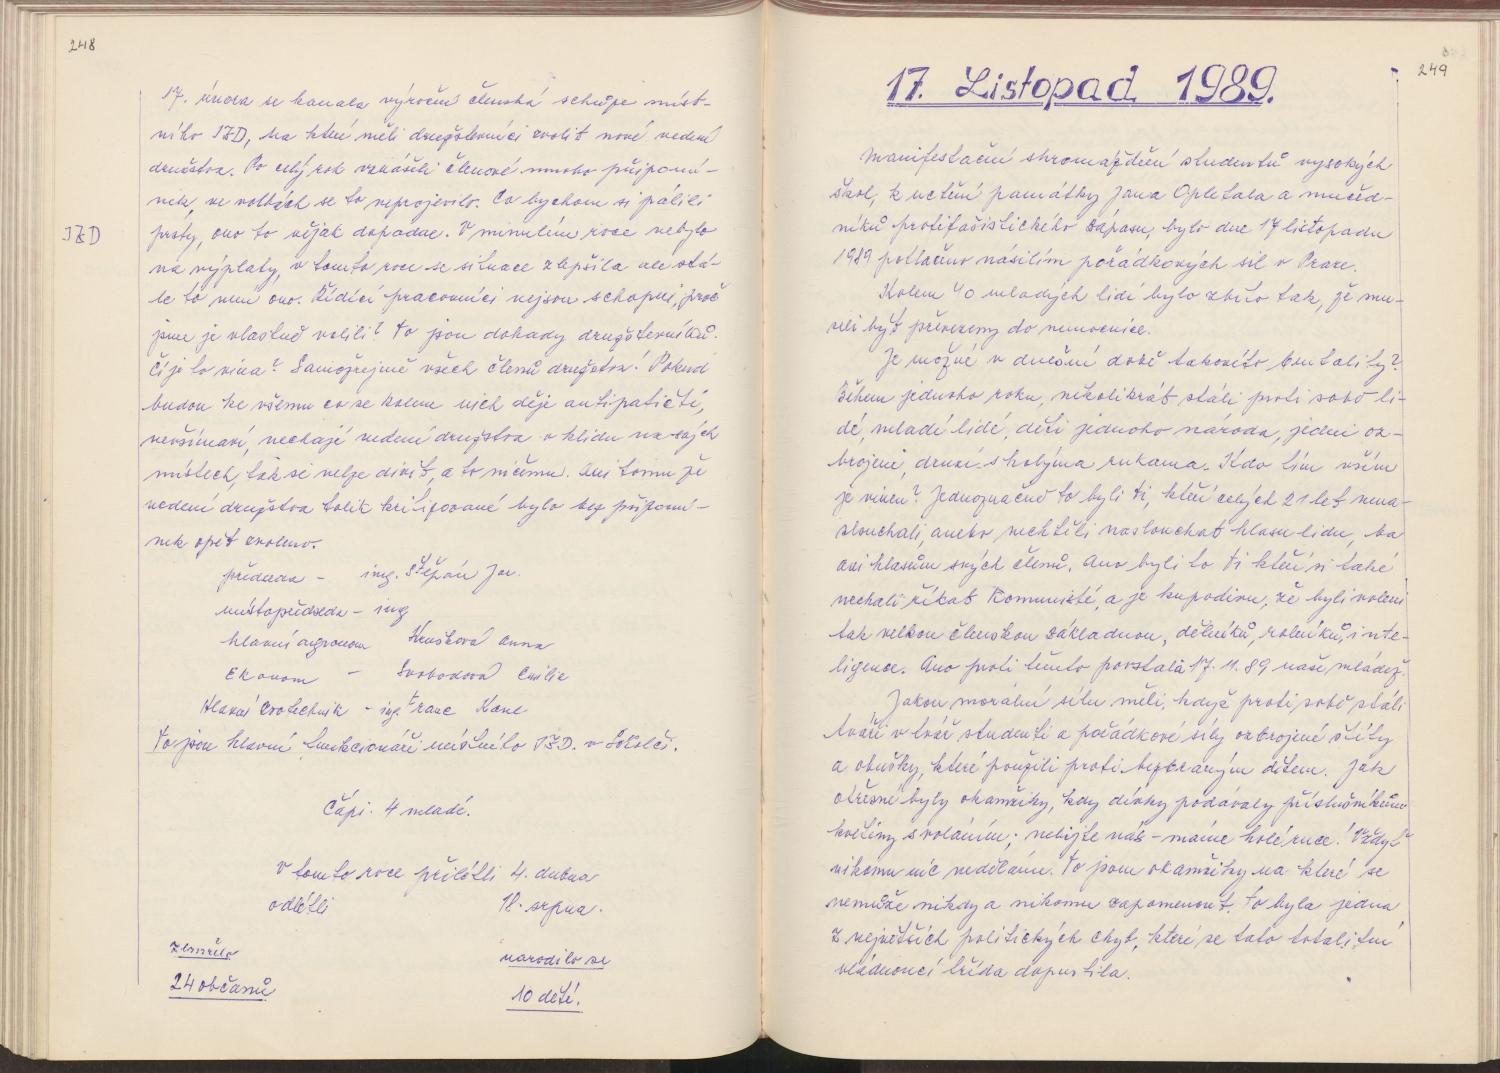 248
17. února se konala výroční členská schůze míst-
ního JZD, na které měli družstevníci zvolit nové vedení
družstva. Po celý rok vznášeli členové mnoho připomí-
nek, ve volbách se to neprojevilo. Co bychom si pálili
prsty, ono to nějak dopadne. V minulém roce nebylo
JZD
na výplaty, v tomto roce se situace zlepšila ale stá-
le to není ono. Řídící pracovníci nejsou schopni, proč
jsme je vlastně volili? To jsou dohady družstevníků.
Čí je to vina? Samozřejmě všech členů družstva! Pokud
budou ke všemu co se kolem nich děje antipatičtí,
nevšímaví, nechají vedení družstva v klidu na svých
místech, tak se nelze divit, a to ničemu. Ani tomu že
vedení družstva tolik kritizované bylo bez připomí-
nek opět zvoleno.
předseda - ing. Štěpán Jar.
místopředseda - ing
hlavní agronom Anna
Ekonom - Svobodová Emilie
Hlavní zootechnik - ing. Franc Karel
To jsou hlavní funkcionáři místního JZD. v Sokolči.
Čápi. 4 mladé.
V tomto roce přilétli 4. dubna
odlétli 18. srpna.
Zemřelo narodilo se
24 občanů 10 dětí.
249
17. Listopad 1989.
Manifestační shromáždění studentů vysokých
škol, k uctění památky Jana Opletala a mučed-
níků protifašistického zápasu, bylo dne 17 listopadu
1989 potlačeno násilím pořádkových sil v Praze.
Kolem 40 mladých lidí bylo zbito tak, že mu-
seli být převezeny do nemocnice.
Je možné v dnešní době takovéto brutality?
Během jednoho roku, několikrát stáli proti sobě li-
dé, mladí lidé, děti jednoho národa, jedni oz-
brojeni, druzí s holýma rukama. Kdo tím vším
je vinen? Jednoznačně to byli ti, kteří celých 21 let nena-
slouchali, anebo nechtěli naslouchat hlasu lidu, ba
ani hlasům svých členů. Ano byli to ti kteří si také
nechali říkat Komunisté, a je kupodivu, že byli voleni
tak velkou členskou základnou, dělníků, rolníků, inte-
ligence. Ano proti těmto povstala 17. 11. 89 naše mládež.
Jakou morální sílu měli, když proti sobě stáli
tváří v tvář studenti a pořádkové síly ozbrojené štíty
a obušky, které použili proti bezbraným dětem. Jak
otřesné byly okamžiky, kdy dívky podávaly příslušníkům
květiny s voláním; nebijte nás - máme holé ruce! Vždyť
nikomu nic neděláme. To jsou okamžiky na které se
nemůže nikdy a nikomu zapomenout. To byla jedna
z největších politických chyb, které se tato totalitní
vládnoucí třída dopustila.